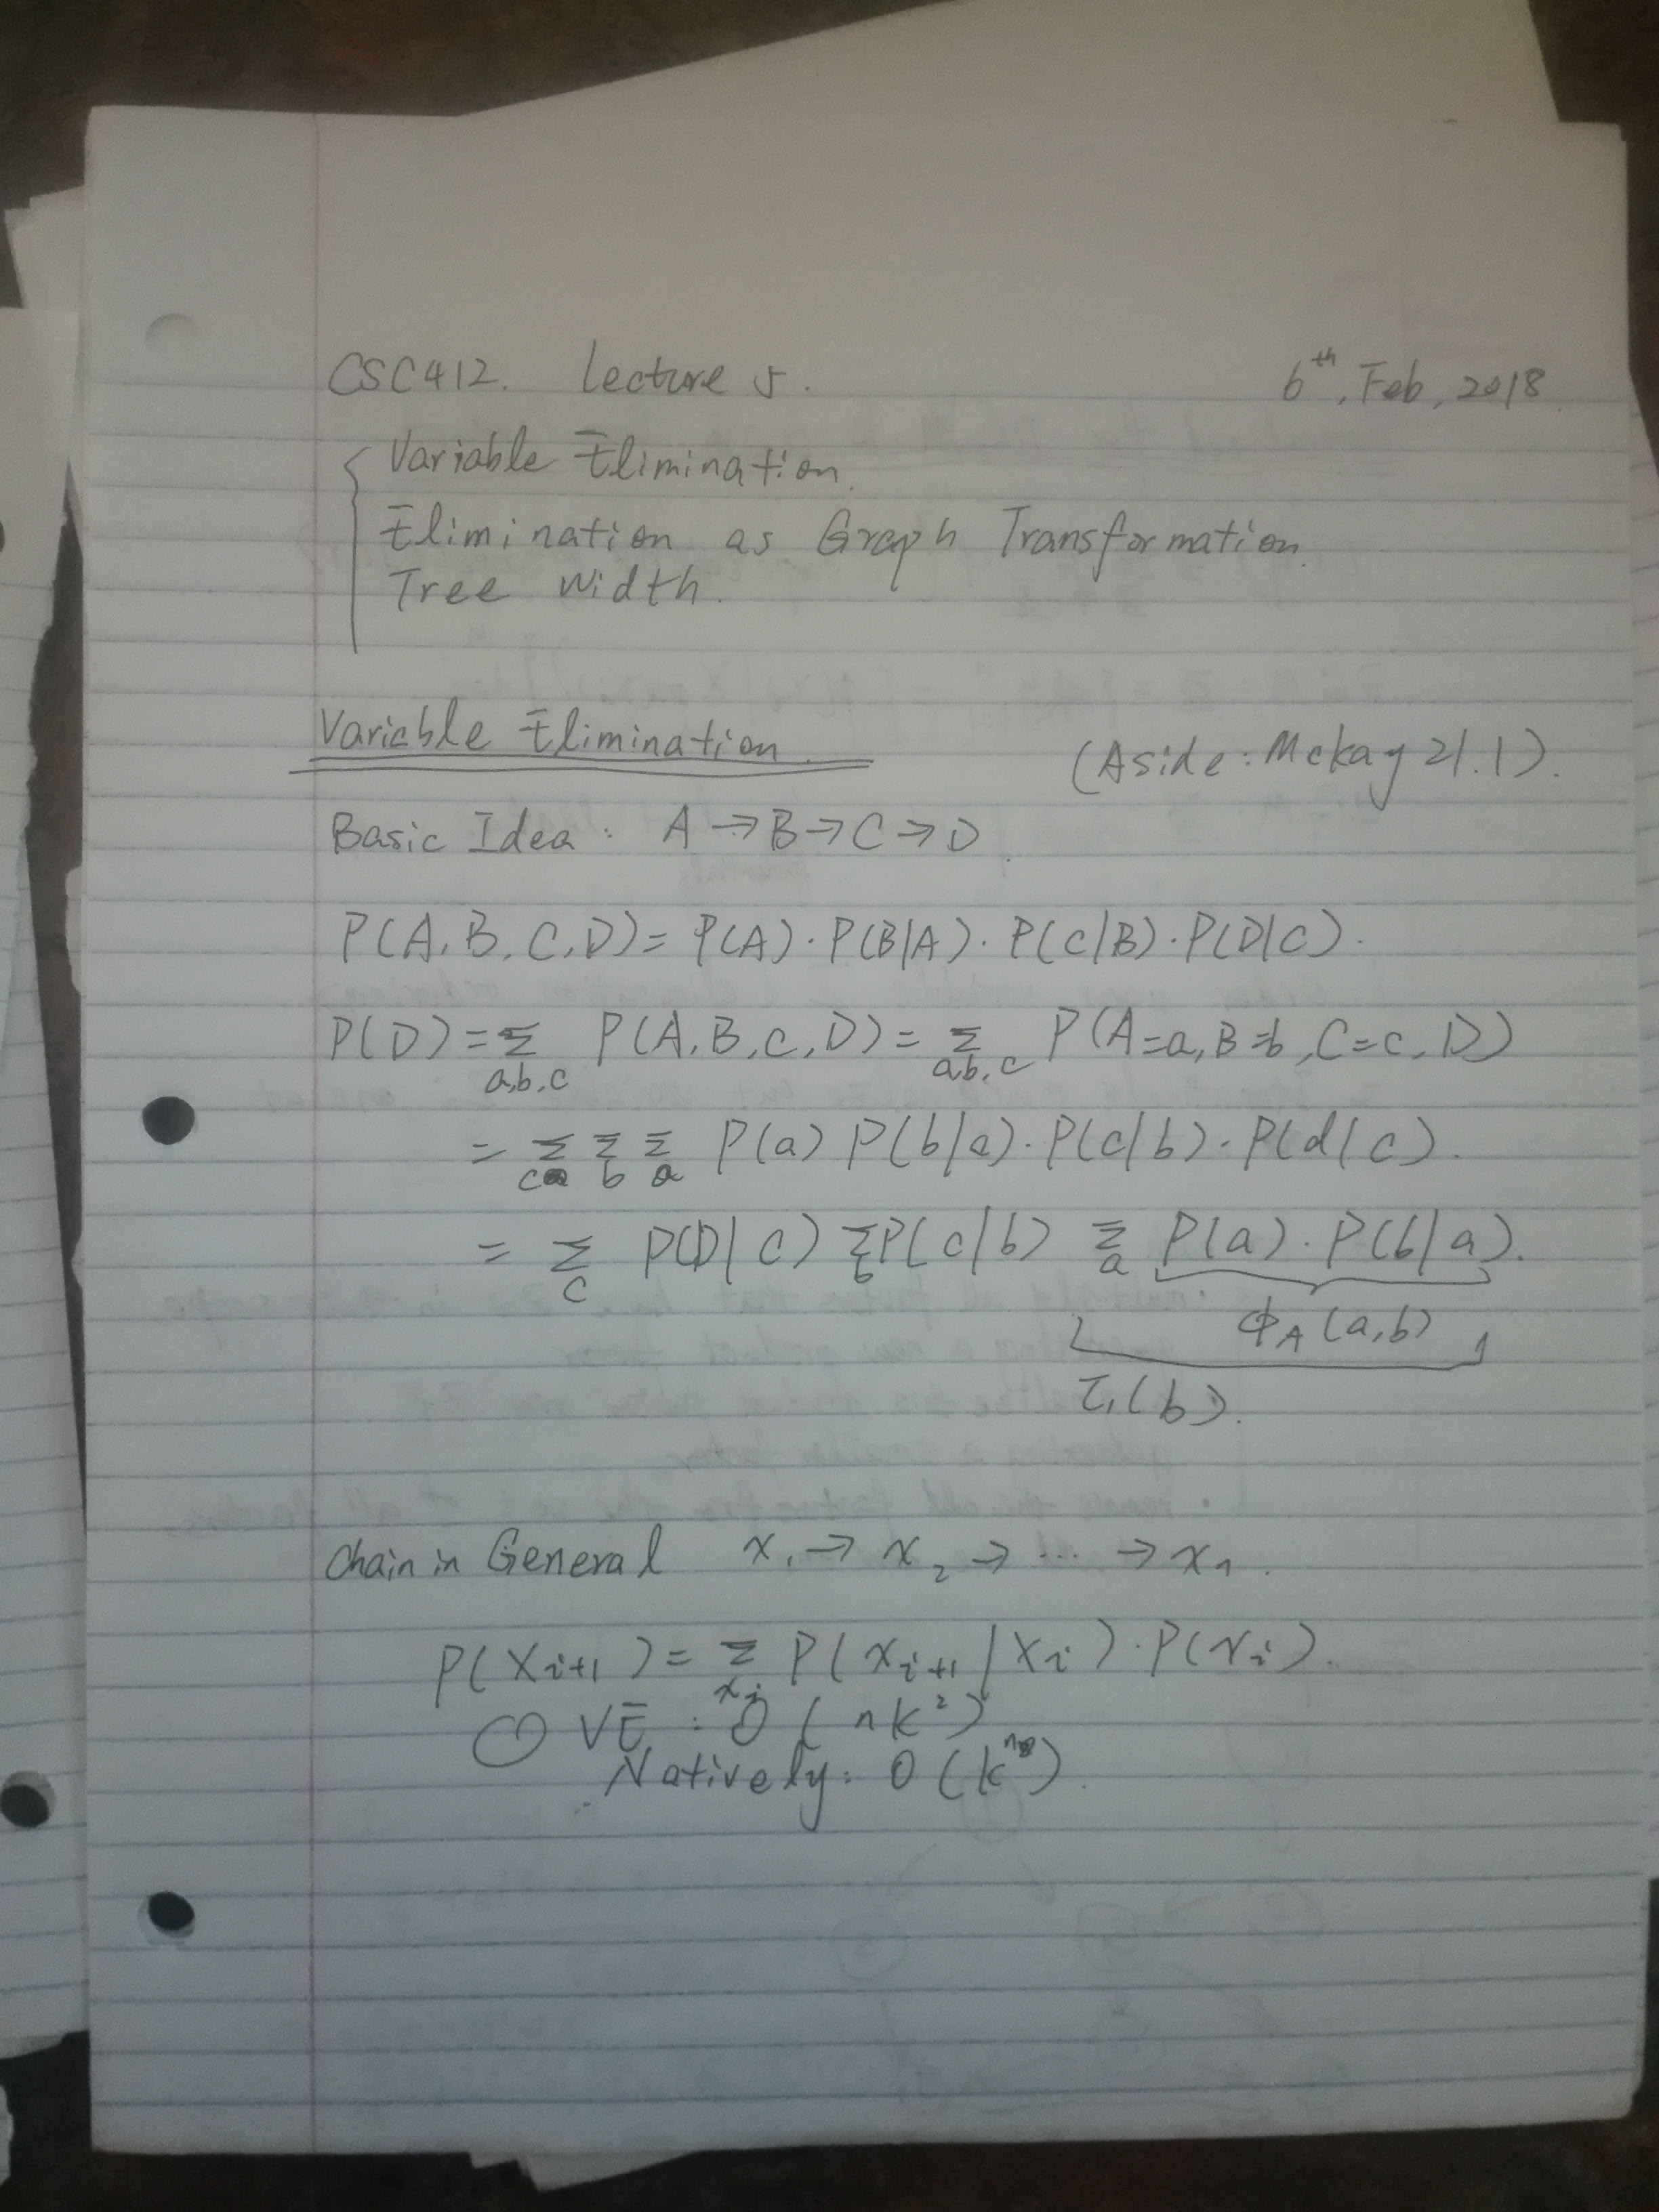 CSC412. Lecture 5.
6th, Feb, 2018
Variable Elimination.
Elimination as Graph Transformation.
Tree Width.
Variable Elimination.
(Aside: Mckay 21.1).
Basic Idea: A → B → C → D.
P(A, B, C, D) = P(A) · P(B|A) · P(C|B) · P(D|C).
P(D) = Σ_{a,b,c} P(A, B, C, D) = Σ_{a,b,c} P(A=a, B=b, C=c, D)
= Σ_c Σ_b Σ_a P(a) P(b|a) · P(c|b) · P(d|c).
= Σ_c P(D|c) Σ_b P(c|b) Σ_a P(a) · P(b|a).
Φ_A (a,b)
τ_1(b).
Chain in General x_1 → x_2 → ... → x_n.
P(X_{i+1}) = Σ_{x_i} P(x_{i+1} | x_i) · P(x_i).
VE: O(nk^2)
Natively: O(k^n).